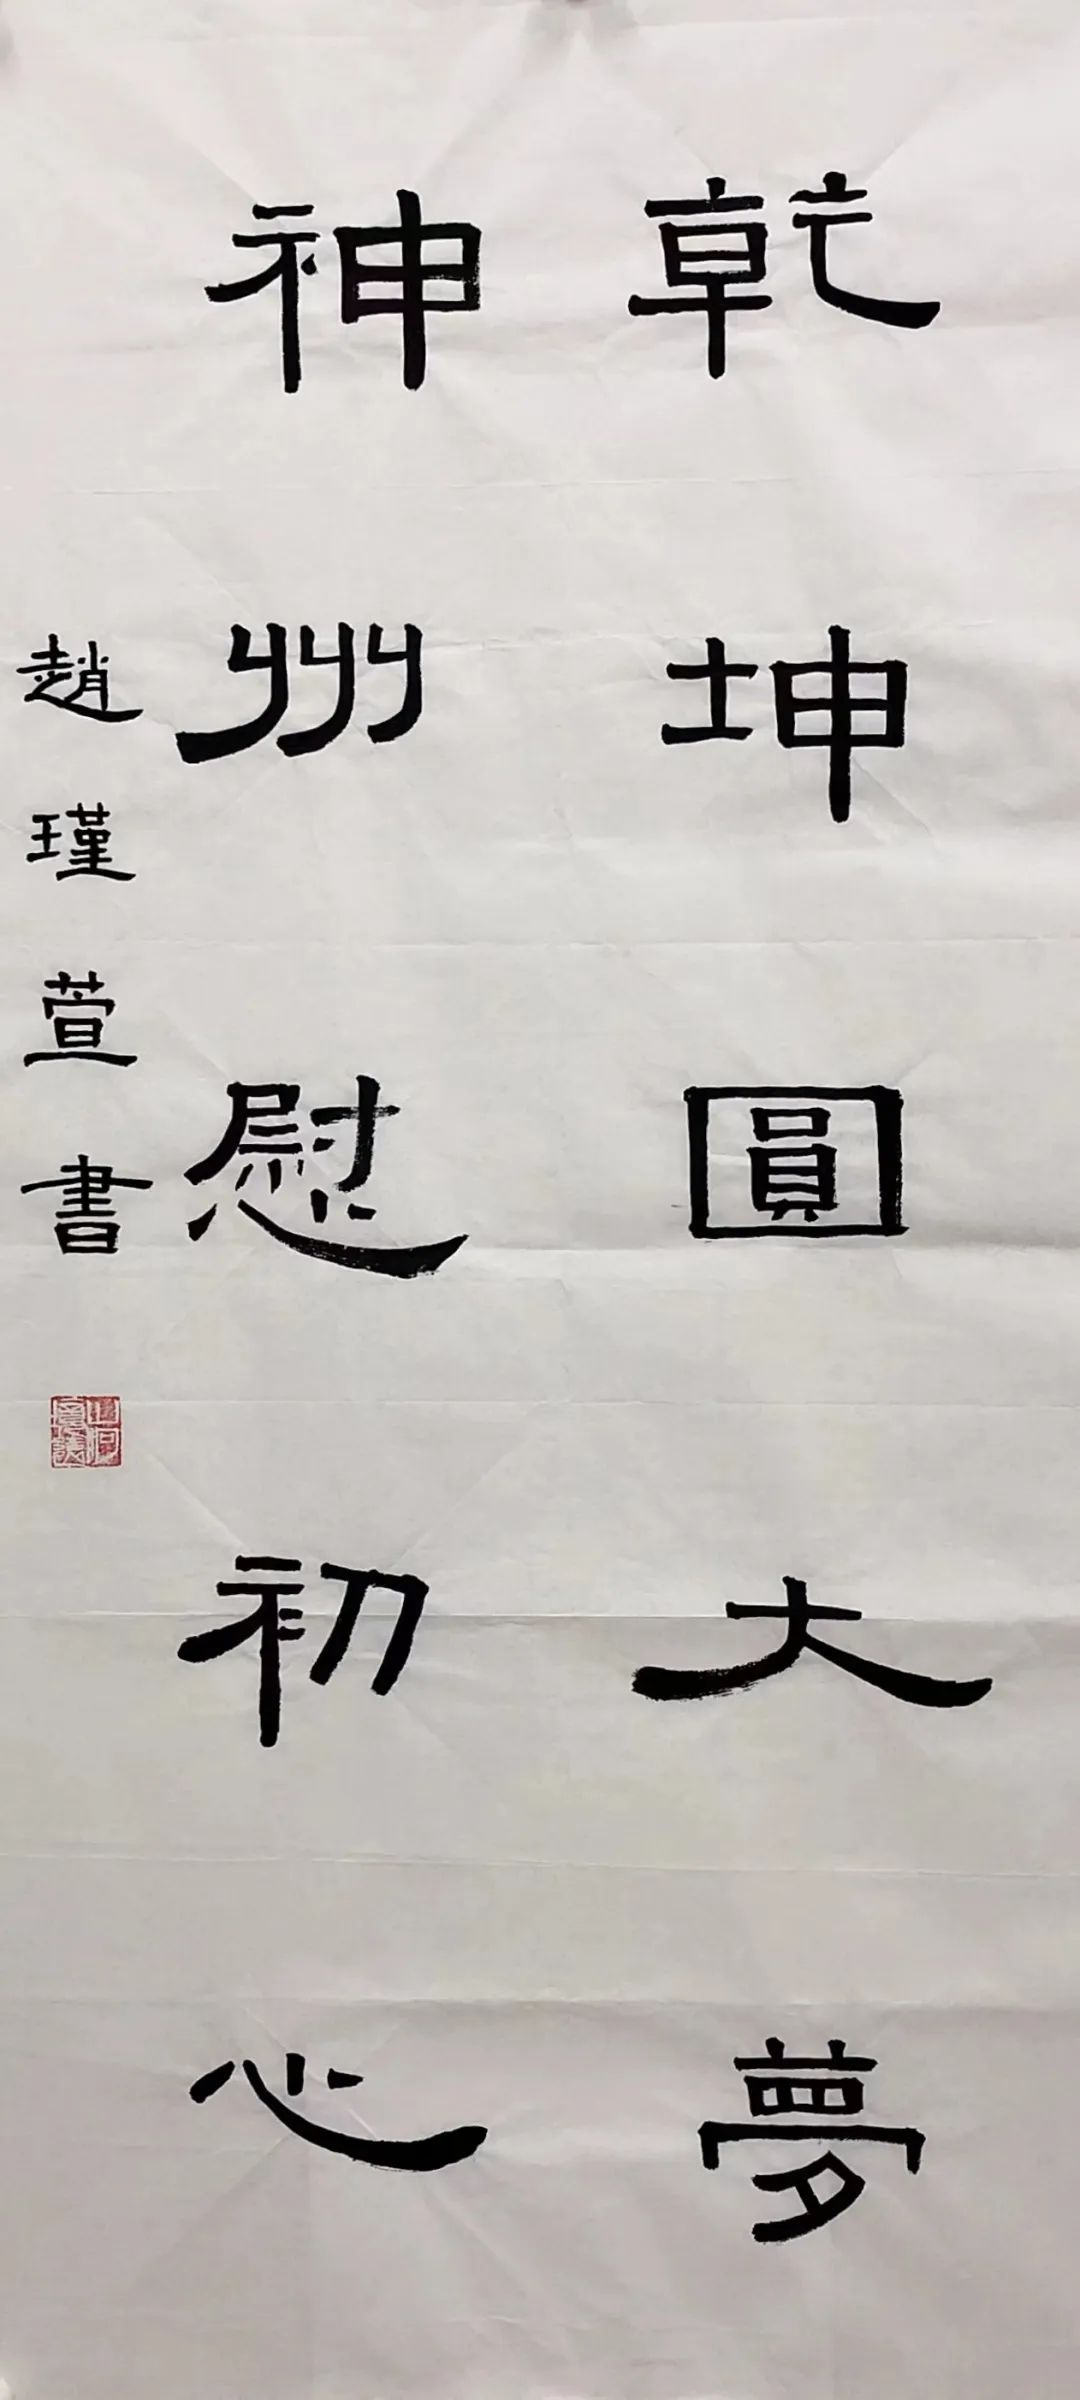 乾坤圓大夢
神州慰初心
趙瑾萱書